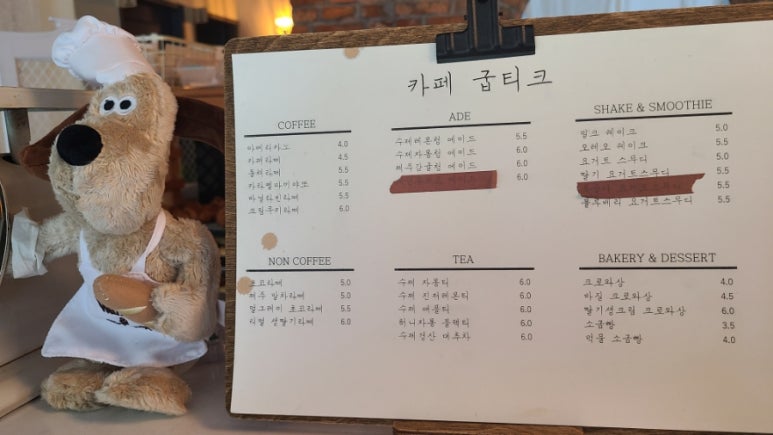 카페 굽티크
COFFEE
아메리카노 4.0
카페라떼 4.5
돌체라떼 5.5
카라멜마끼야또 5.5
바닐라빈라떼 5.5
크림쿠키라떼 6.0
ADE
수제레몬청 에이드 5.5
수제자몽청 에이드 6.0
제주감귤청 에이드 6.0
6.0
SHAKE & SMOOTHIE
밀크 쉐이크 5.0
오레오 쉐이크 5.0
요거트 스무디 5.0
딸기 요거트스무디 5.5
요거트스무디 5.5
블루베리 요거트스무디 5.5
NON COFFEE
초코라떼 5.0
제주 말차라떼 5.0
얼그레이 초코라떼 5.5
리얼 생딸기라떼 6.0
TEA
수제 자몽티 6.0
수제 진저레몬티 6.0
수제 애플티 6.0
허니자몽 블랙티 6.0
수제경산 대추차 6.0
BAKERY & DESSERT
크로와상 4.0
바질 크로와상 4.5
딸기생크림 크로와상 6.0
소금빵 3.5
먹물 소금빵 4.0